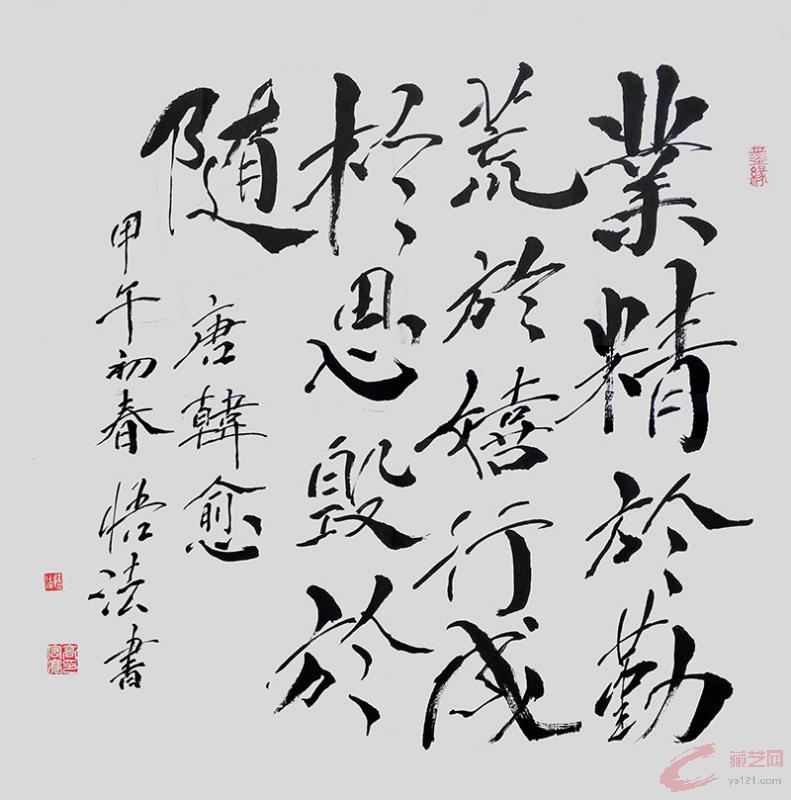 業精於勤
荒於嬉行成
於思毀於
隨
唐韓愈
甲午初春悟法書
墨緣
藏艺网
ys121.com